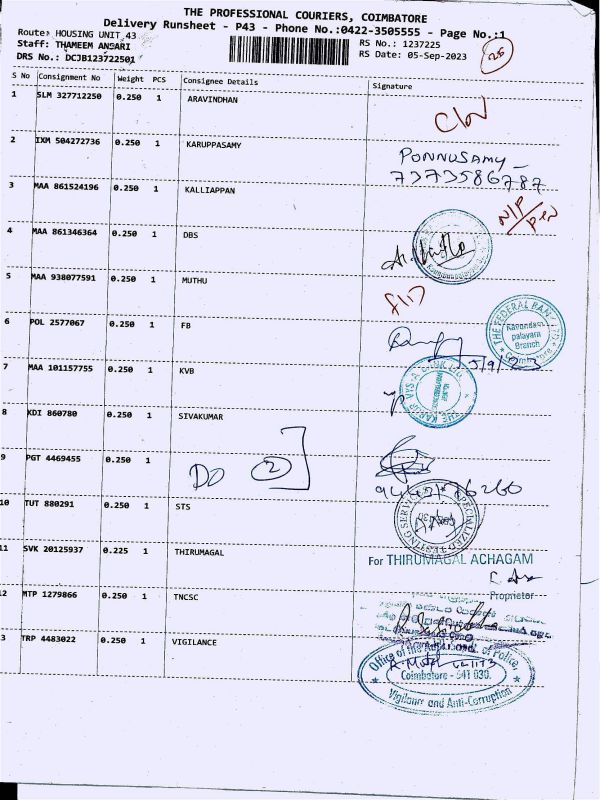 THE PROFESSIONAL COURIERS, COIMBATORE
Delivery Runsheet - P43 - Phone No.:0422-3505555 - Page No.:1
Route: HOUSING UNIT 43
Staff: THAMEEM ANSARI
DRS No.: DCJB123722501
RS No.: 1237225
RS Date: 05-Sep-2023
S No Consignment No Weight PCS Consignee Details Signature
1 SLM 327712250 0.250 1 ARAVINDHAN
2 IXM 504272736 0.250 1 KARUPPASAMY PONNUSAMY
7373586787
3 MAA 861524196 0.250 1 KALLIAPPAN
N/P
4 MAA 861346364 0.250 1 DBS
5 MAA 938077591 0.250 1 MUTHU
6 POL 2577067 0.250 1 FB
THE FEDERAL BANK LTD
Kavundampalayam
Branch
Coimbatore
5/9/23
7 MAA 101157755 0.250 1 KVB
8 KDI 860780 0.250 1 SIVAKUMAR
9 PGT 4469455 0.250 1 DO 2
10 TUT 880291 0.250 1 STS
SPECIALIZED TESTING SERVICES
11 SVK 20125937 0.225 1 THIRUMAGAL
For THIRUMAGAL ACHAGAM
Proprietor
12 MTP 1279866 0.250 1 TNCSC
13 TRP 4483022 0.250 1 VIGILANCE
Office of the Addl. Supdt. of Police
Coimbatore - 641 030.
Vigilance and Anti-Corruption